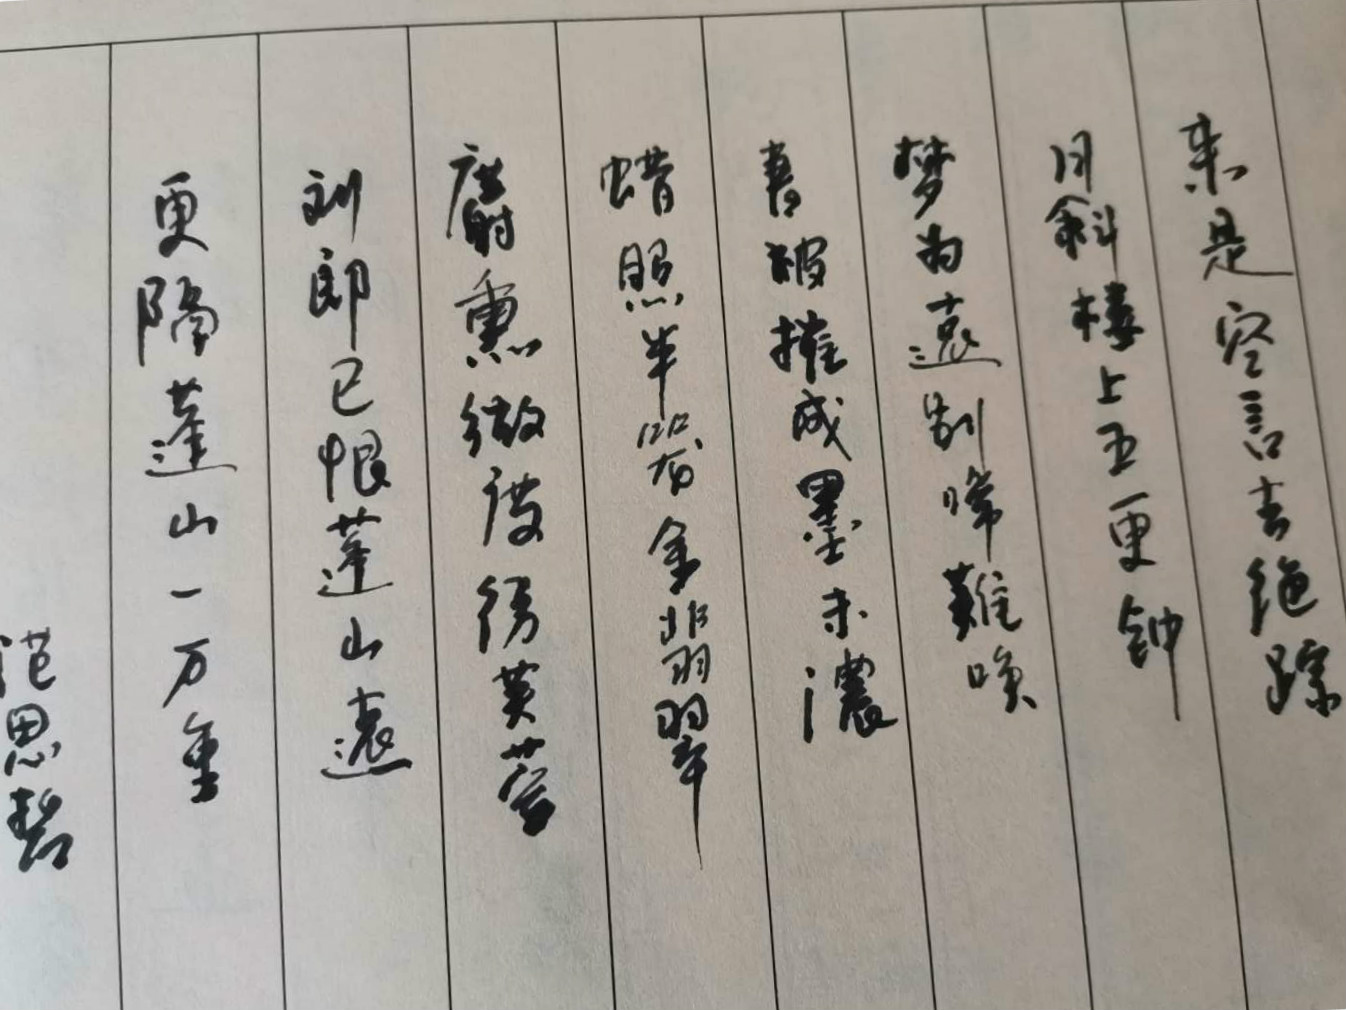 来是空言去绝踪
月斜楼上五更钟
梦为远别啼難唤
書被摧成墨未濃
蜡照半笼金翡翠
麝熏微度绣芙蓉
刘郎已恨蓬山遠
更隔蓬山一万重
范思哲